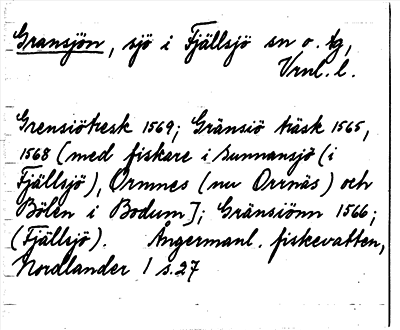 Gransjön, sjö i Fjällsjö sn o. tg,
Vrnl. l.
Grensiötresk 1569; Gränsiö träsk 1565,
1568 (med fiskare i Sunnansjö (i
Fjällsjö), Ormnes (nu Orrnäs) och
Bölen i Bodum]; Gränsiönn 1566;
(Fjällsjö). Ångermanl. fiskevatten,
Nordlander 1 s.27